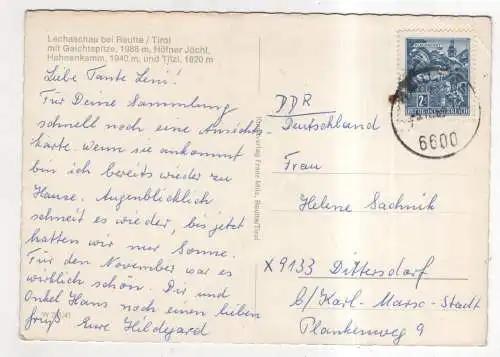 Lechaschau bei Reutte / Tirol
mit Gaichtspitze, 1988 m, Höfner Jöchl,
Hahnenkamm, 1940 m, und Titzl, 1820 m
Liebe Tante Leni!
Für Deine Sammlung
schnell noch eine Ansichts-
karte. Wenn sie ankommt
bin ich bereits wieder zu
Hause. Augenblicklich
schneit es wieder, bis jetzt
hatten wir nur Sonne.
Für den November war es
wirklich schön. Dir und
Onkel Hans noch einen lieben
Gruß Eure Hildegard
Franz Milz, Reutte/Tirol
DDR
Deutschland
Frau
Helene Sachnik
x 9133 Dittersdorf
b/Karl-Marx-Stadt
Plankenweg 9
2
6600